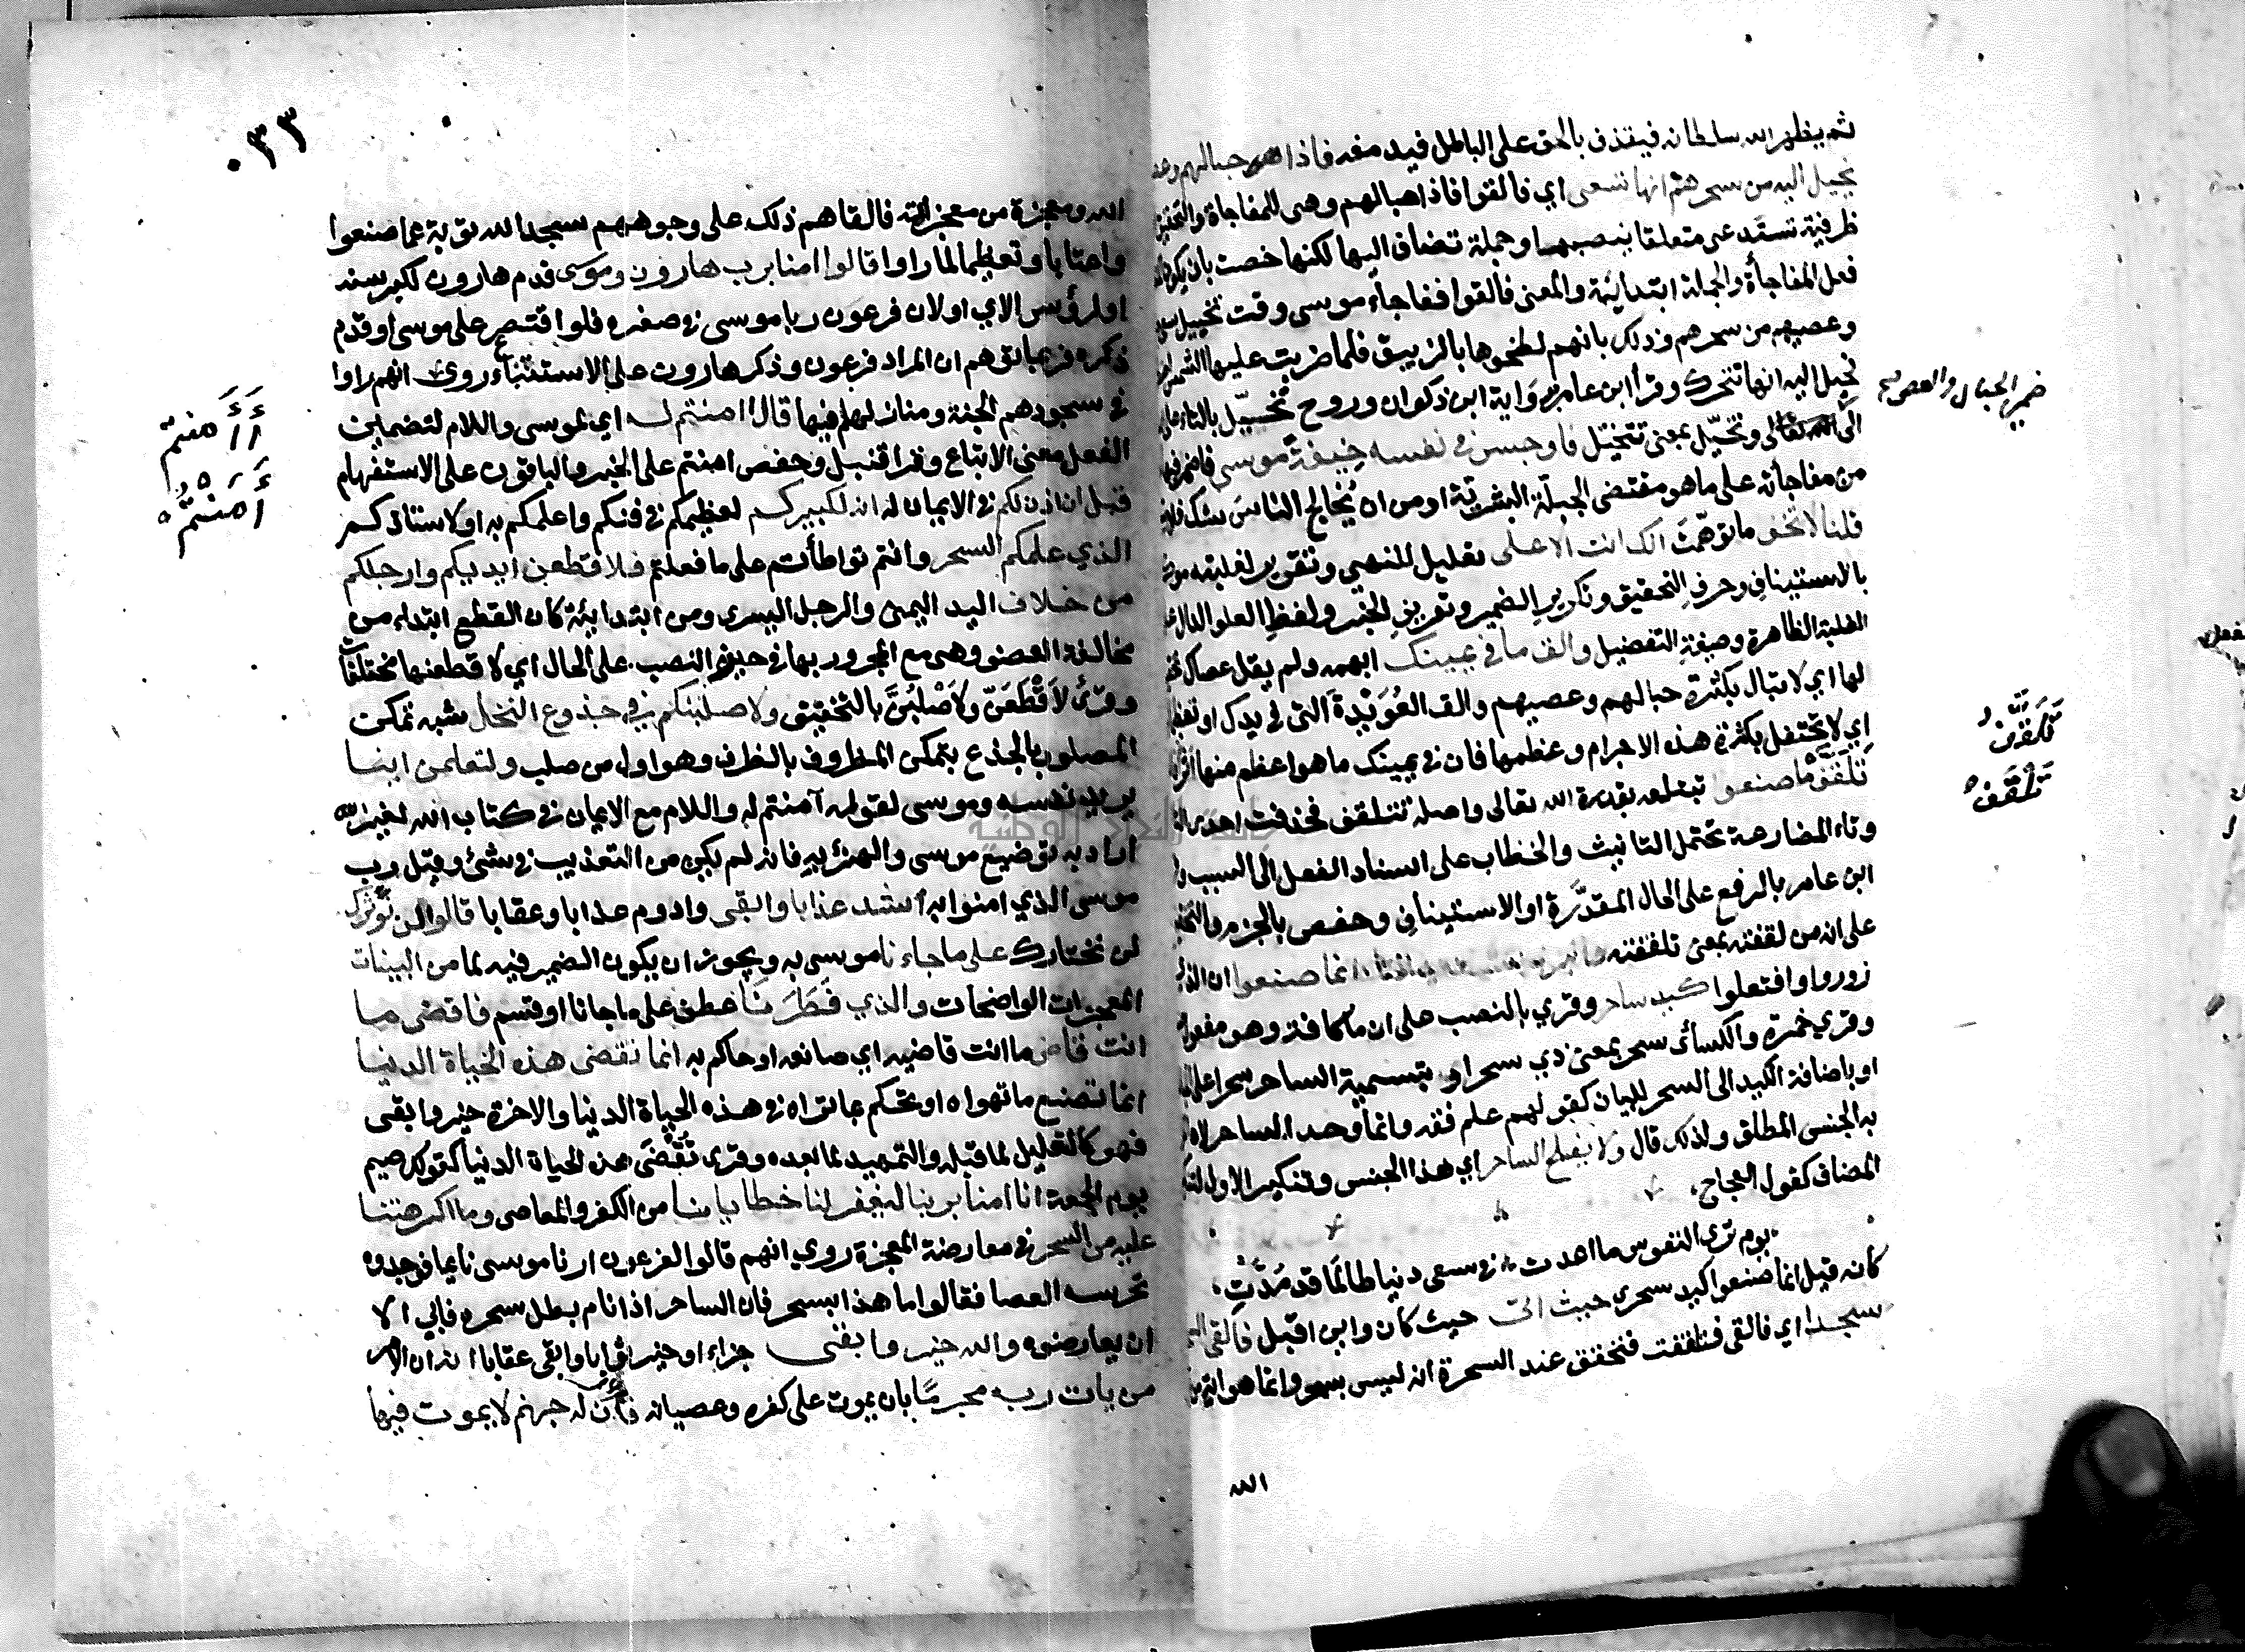 ثم يظهر الله سلطانه فيقذف بالحق على الباطل فيدمغه فاذا حبالهم
يخيل اليه من سحرهم انها تسعى اي فالقوا فاذا حبالهم وهى للمفاجاة والتحقيق
ظرفية تستدعى متعلقا ينصبها وجملة تضاف اليها لكنها خصت بان يكون
فعل المفاجأة والجملة ابتدائية والمعنى فالقوا ففاجأ موسى وقت تخييل
وعصيهم من سحرهم وذلك بانهم لطخوها بالزيبق فلما ضربت عليها الشمس
فخيل اليه انها تتحرك وقرأ ابن عامر برواية ابن ذكوان وروح تخيّل بالتاء على
ضمير الحبال والعصي
وتخيّل بمعنى تتخيل فاوجس في نفسه خيفة موسى فاضمر فيها
من مفاجأته على ما هو مقتضى الجبلّة البشريّة او من ان يُخالج الناسَ شك
قلنا لا تخف ما توهّمتَ انك انت الاعلى تعليل للنهي وتقرير لغلبته
بالاستيناف وحرف التحقيق وتكرير الضمير وتعريف الخبر ولفظ العلو الدال على
الغلبة الظاهرة وصيغة التفضيل والق ما في يمينك ابهمه ولم يقل عصاك
لها اي لا تبال بكثرة حبالهم وعصيهم والق العُوَيْدة التى في يدك او
اي لا تحتفل بكثرة هذه الاجرام وعظمها فان في يمينك ما هو اعظم منها
تَلَقَّفُ
تَلْقَفْ
تلقف ما صنعوا تبتلعه بقدرة الله تعالى واصله تتلقف فحذفت احدى
وتاء المضارعة تحتمل التانيث والخطاب على اسناد الفعل الى السبب
ابن عامر بالرفع على الحال المقدّرة او الاستيناف وحفص بالجزم والتخفيف
على انه من لقفته بمعنى تلقفته انما صنعوا ان الذي
زوروا وافتعلوا كيد ساحر وقري بالنصب على ان ما كافة وهو مفعول
وقري حمزة والكسائى سحر بمعنى ذي سحر او بتسمية الساحر سحرا على
او باضافة الكيد الى السحر للبيان كقولهم علم فقه وانما وحد الساحر لان
به الجنس المطلق ولذلك قال ولا يفلح الساحر اي هذا الجنس وتنكير الاول
المضاف كقول العجاج
يوم ترى النفوس ما اعدت في سعى دنيا طالما قد مُدّتِ
كانه قيل انما صنعوا كيد سحري حيث اتى حيث كان واين اقبل فالقى
سجدا اي فالقى فتلقفت فتحقق عند السحرة انه ليس بسحر وانما هو
الله
٠٣٣
الله ومعجزة من معجزاته فالقاهم ذلك على وجوههم سجدا لله توبة عما صنعوا
واعتابا وتعظيما لما راوا قالوا امنا برب هارون وموسى قدم هارون لكبر سنه
او لرؤس الاي او لان فرعون ربا موسى في صغره فلو اقتصر على موسى او قدم
ذكره فربما توهم ان المراد فرعون وذكر هارون على الاستتباع روى انهم راوا
في سجودهم الجنة ومنازلهم فيها قال امنتم له اي لموسى واللام لتضمين
أَأَمنتم
ءَامنتم
الفعل معنى الاتباع وقرا قنبل وحفص امنتم على الخبر والباقون على الاستفهام
قبل ان اذن لكم في الايمان له انه لكبيركم لعظيمكم في فنكم واعلمكم به او لاستاذكم
الذي علمكم السحر وانتم تواطأتم على ما فعلتم فلاقطعن ايديكم وارجلكم
من خلاف اليد اليمنى والرجل اليسرى ومن ابتدايية كان القطع ابتداء من
مخالفة العضو وهى مع المجرور بها في حيز النصب على الحال اي لاقطعنها مختلفات
وقرئ لاَقْطَعَنّ ولاَصْلُبَنّ بالتخفيف ولاصلبنكم في جذوع النخل شبه تمكن
المصلوب بالجذع بتمكن المظروف بالظرف وهو اول من صلب ولتعلمن اينا
يريد نفسه وموسى لقوله آمنتم له واللام مع الايمان في كتاب الله لغير الله
اراد به توضيع موسى والهزء به فانه لم يكن من التعذيب في شئ وقيل رب
موسى الذي امنوا به اشد عذابا وابقى وادوم عذابا وعقابا قالوا لن نؤثرك
لن نختارك على ما جاءنا موسى به ويجوز ان يكون الضمير فيه لما من البينات
المعجزات الواضحات والذي فَطَرَنَا عطف على ما جانا او قسم فاقض ما
انت قاض ما انت قاضيه اي صانعه او حاكم به انما تقضى هذه الحياة الدنيا
انما تصنع ما تهواه او تحكم بما تراه في هذه الحياة الدنيا والاخرة خير وابقى
فهو كالتعليل لما قبله والتمهيد لما بعده وقرى تُقْضَى هذه الحياة الدنيا كقولك صيم
يوم الجمعة انا امنا بربنا ليغفر لنا خطايانا من الكفر والمعاصى وما اكرهتنا
عليه من السحر في معارضة المعجزة روي انهم قالوا لفرعون ارنا موسى نايما فوجدوه
تحرسه العصا فقالوا ما هذا بسحر فان الساحر اذا نام بطل سحره فابي الا
ان يعارضوه والله خير وابقى جزاء او خير ثوابا وابقى عقابا انه ان الامر
من يات ربه مجرمًا بان يموت على كفره وعصيانه فان له جهنم لا يموت فيها